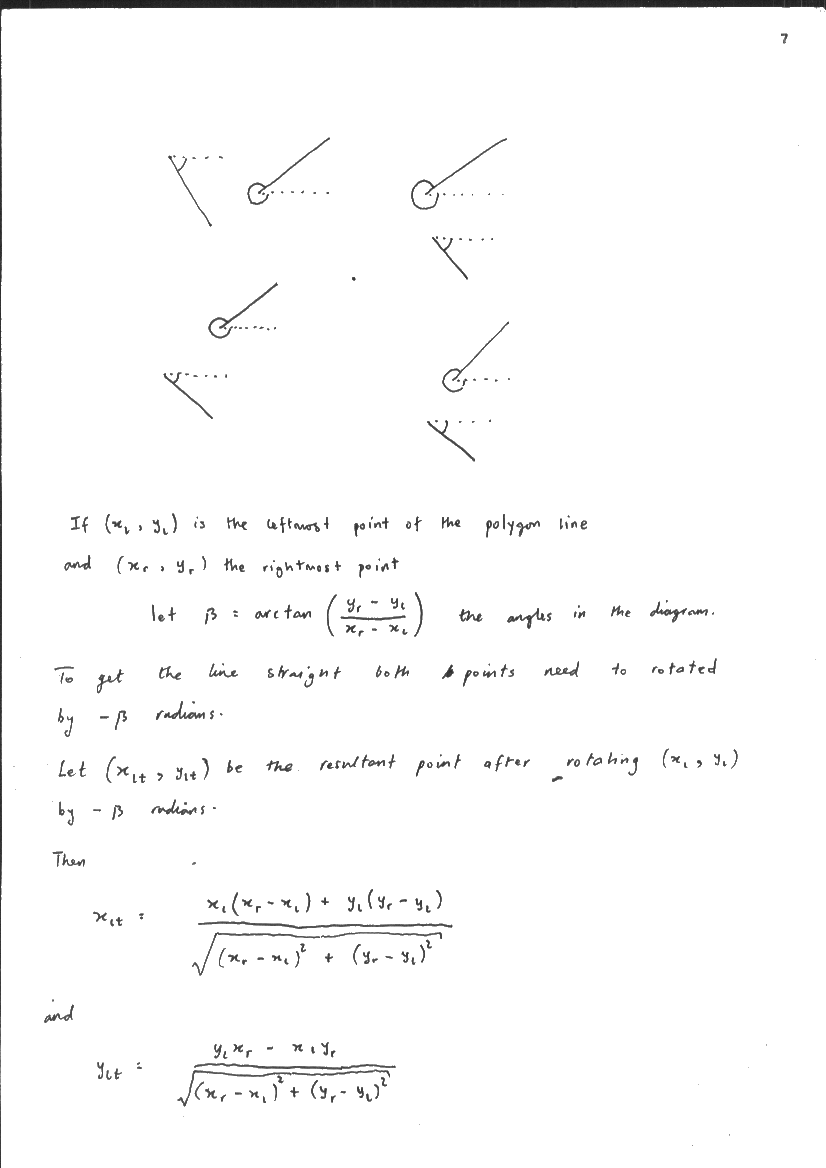 7
If (x_l, y_l) is the leftmost point of the polygon line
and (x_r, y_r) the rightmost point
let β = arctan ((y_r - y_l)/(x_r - x_l)) the angles in the diagram.
To get the line straight both points need to rotated
by -β radians.
Let (x_lt, y_lt) be the resultant point after rotating (x_l, y_l)
by -β radians.
Then
x_lt = (x_l(x_r - x_l) + y_l(y_r - y_l)) / √((x_r - x_l)² + (y_r - y_l)²)
and
y_lt = (y_l x_r - x_l y_r) / √((x_r - x_l)² + (y_r - y_l)²)